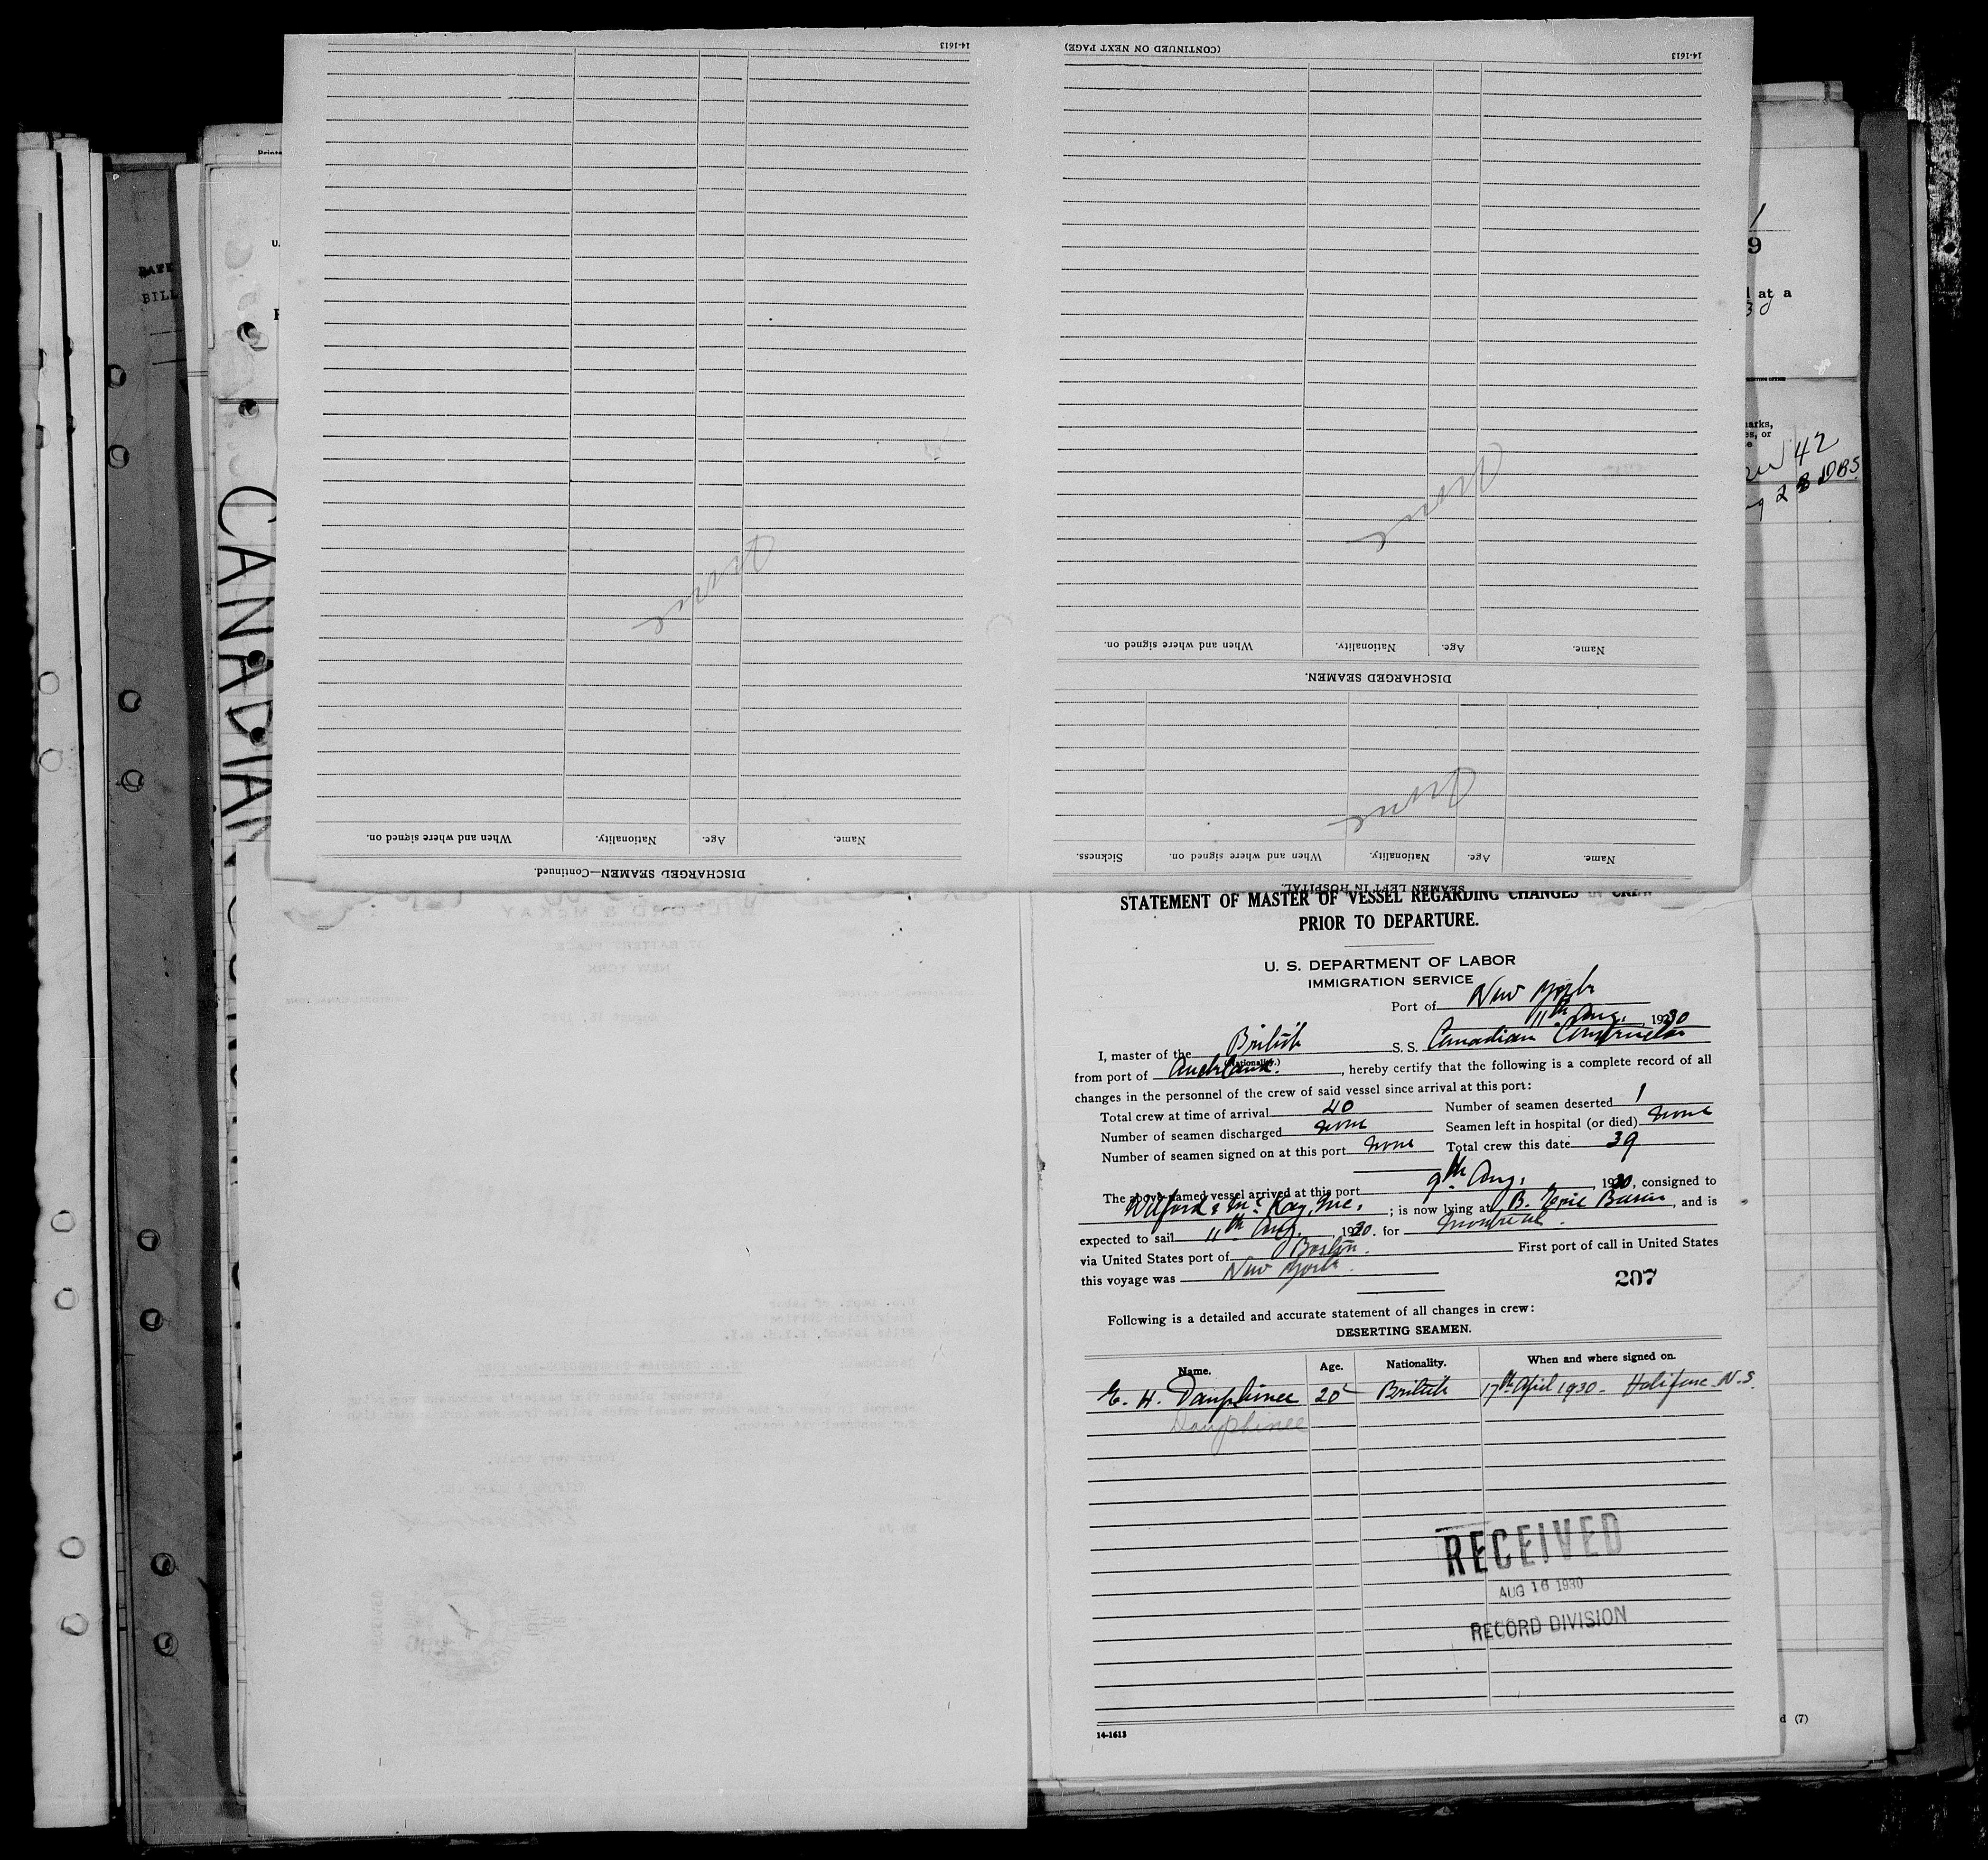 14-1613
(CONTINUED ON NEXT PAGE)
14-1613
None
None
When and where signed on. Nationality. Age. Name.
DISCHARGED SEAMEN.
None
When and where signed on. Nationality. Age. Name.
Sickness. When and where signed on. Nationality. Age. Name.
DISCHARGED SEAMEN—Continued.
SEAMEN LEFT IN HOSPITAL.
CANADIAN
BILL
U.
at a
42
2 8 DBS
(7)
STATEMENT OF MASTER OF VESSEL REGARDING CHANGES IN CREW
PRIOR TO DEPARTURE.
U. S. DEPARTMENT OF LABOR
IMMIGRATION SERVICE
Port of New York
11th Aug., 1930
I, master of the British S. S. Canadian Constructor
(Nationality.)
from port of Auckland., hereby certify that the following is a complete record of all
changes in the personnel of the crew of said vessel since arrival at this port:
Total crew at time of arrival 40 Number of seamen deserted 1
Number of seamen discharged none Seamen left in hospital (or died) none
Number of seamen signed on at this port none Total crew this date 39
The above-named vessel arrived at this port 9th Aug., 1930, consigned to
Wilford & McKay, Inc. ; is now lying at B. Erie Basin, and is
expected to sail 11th Aug., 1930. for Montreal.
via United States port of Boston. First port of call in United States
this voyage was New York.
207
Following is a detailed and accurate statement of all changes in crew:
DESERTING SEAMEN.
Name. Age. Nationality. When and where signed on.
E. H. Dauphinee 20 British 17th April 1930. Halifax N.S.
Dauphinee
RECEIVED
AUG 16 1930
RECORD DIVISION
14-1613